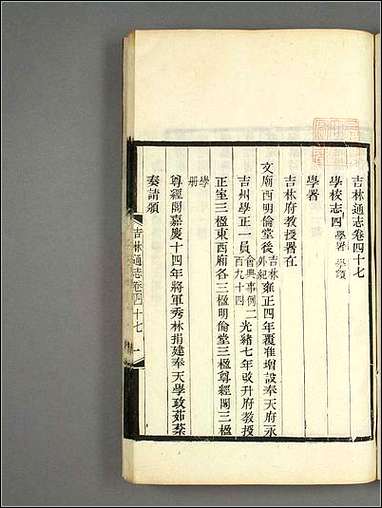 吉林通志卷四十七
學校志四 學署 學額
學署
吉林府教授署在
文廟西明倫堂後 吉林外紀 雍正四年覆准增設奉天府永
吉州學正一員 會典事例二百九十四 光緒七年改升府教授
正室三楹東西廂各三楹明倫堂三楹尊經閣三楹
學冊
尊經閣嘉慶十四年將軍秀林捐建奉天學政茹棻
奏請頒
吉林通志卷四十七 一